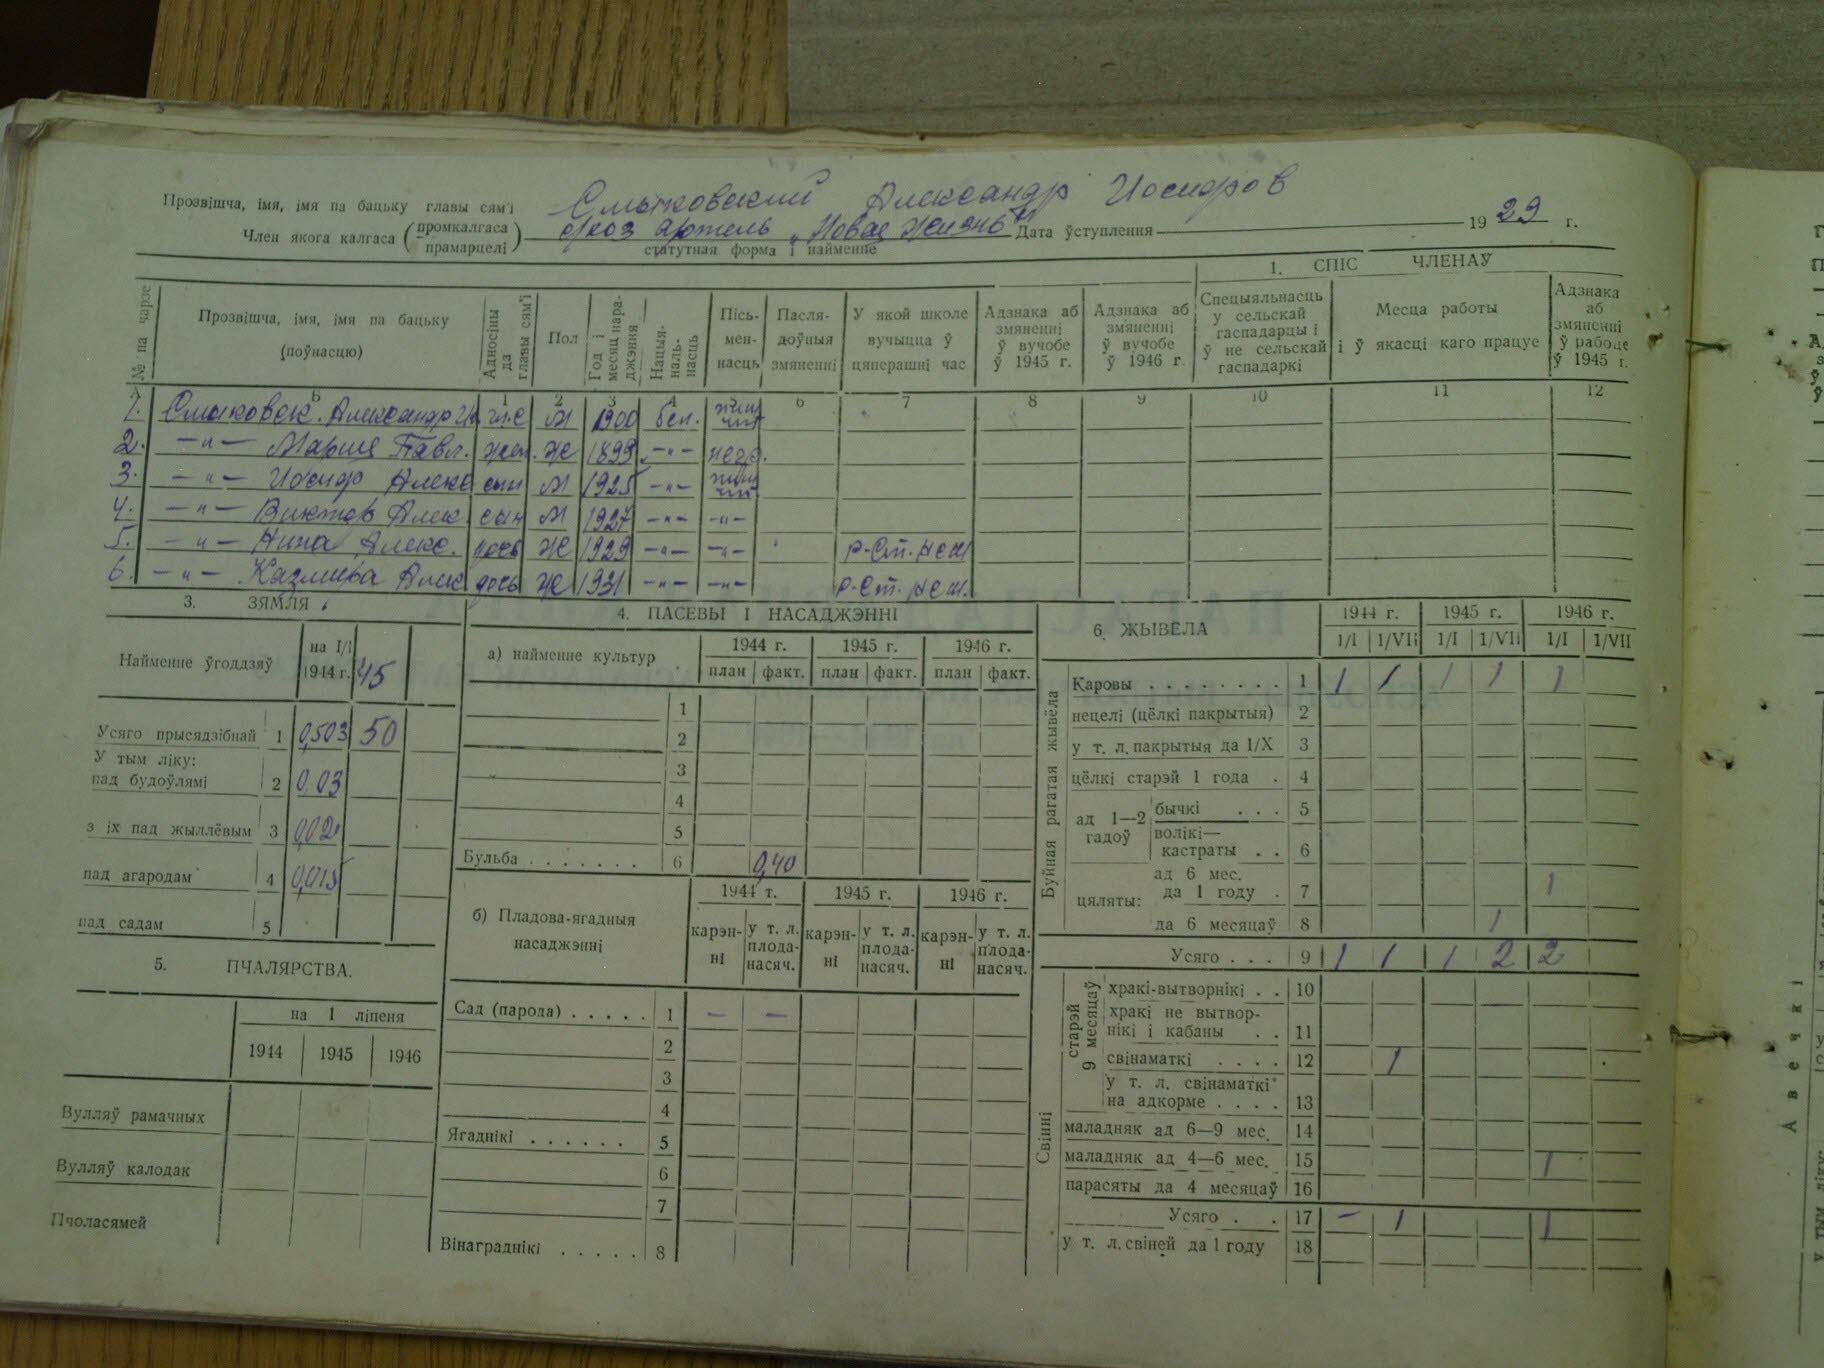 Прозвішча, імя, імя па бацьку главы сям'і Смыковский Александр Иосифов
Член якога калгаса (промкалгаса прамарцелі) артель „Новая жизнь" Дата ўступлення 1929 г.
статутная форма і найменне
1. СПІС ЧЛЕНАЎ
№ па чарзе
Прозвішча, імя, імя па бацьку (поўнасцю)
Адносіны да главы сям'і
Пол
Год і месяц нараджэння
Нацыянальнасць
Пісьменнасць
Паслядоўныя змяненні
У якой школе вучыцца ў цяперашні час
Адзнака аб змяненні ў вучобе ў 1945 г.
Адзнака аб змяненні ў вучобе ў 1946 г.
Спецыяльнасць у сельскай гаспадарцы і ў не сельскай гаспадаркі
Месца работы і ў якасці каго працуе
Адзнака аб змяненні ў рабоце ў 1945 г.
Б 1 2 3 4 6 7 8 9 10 11 12
1. Смыковск. Александр М 1900 бел.
2. —"— Мария Павл. жен. Ж 1899 —"— негр.
3. —"— Иосиф Алекс сын М 1925 —"—
4. —"— Виктор Алек. сын М 1927 —"— —"—
5. —"— Нина Алекс. дочь Ж 1929 —"— —"—
6. —"— Казмира Алек дочь Ж 1931 —"— —"—
3. ЗЯМЛЯ
Найменне ўгоддзяў на I/I 1944 г. 45
Усяго прысядзібнай 1 0,503 50
У тым ліку:
пад будоўлямі 2 0,03
з іх пад жыллёвым 3 0,02
пад агародам 4 0,015
пад садам 5
5. ПЧАЛЯРСТВА.
на 1 ліпеня
1944 1945 1946
Вулляў рамачных
Вулляў калодак
Пчоласямей
4. ПАСЕВЫ І НАСАДЖЭННІ
а) найменне культур 1944 г. 1945 г. 1946 г.
план факт. план факт. план факт.
1
2
3
4
5
Бульба . . . . . . . 6 0,40
б) Пладова-ягадныя насаджэнні
1944 г. 1945 г. 1946 г.
карэнні у т. л. пладанасяч. карэнні у т. л. пладанасяч. карэнні у т. л. пладанасяч.
Сад (парода) . . . . . 1 — —
2
3
4
Ягаднікі . . . . . . 5
6
7
Вінаграднікі . . . . . 8
6. ЖЫВЁЛА
1944 г. 1945 г. 1946 г.
1/I 1/VII 1/I 1/VII 1/I 1/VII
Буйная рагатая жывёла
Каровы . . . . . . . . 1 1 1 1 1 1
нецелі (цёлкі пакрытыя) 2
у т. л. пакрытыя да 1/X 3
цёлкі старэй 1 года . 4
ад 1—2 гадоў
бычкі . . . 5
волікі—кастраты . . 6
цяляты:
ад 6 мес. да 1 году . 7 1
да 6 месяцаў 8 1
Усяго . . . 9 1 1 1 2 2
Свінні
старэй 9 месяцаў
хракі-вытворнікі . . 10
хракі не вытворнікі і кабаны . . 11
свінаматкі . . . . 12 1
у т. л. свінаматкі на адкорме . . . . 13
маладняк ад 6—9 мес. 14
маладняк ад 4—6 мес. 15 1
парасяты да 4 месяцаў 16
Усяго . . 17 — 1 1
у т. л. свіней да 1 году 18
Авечкі